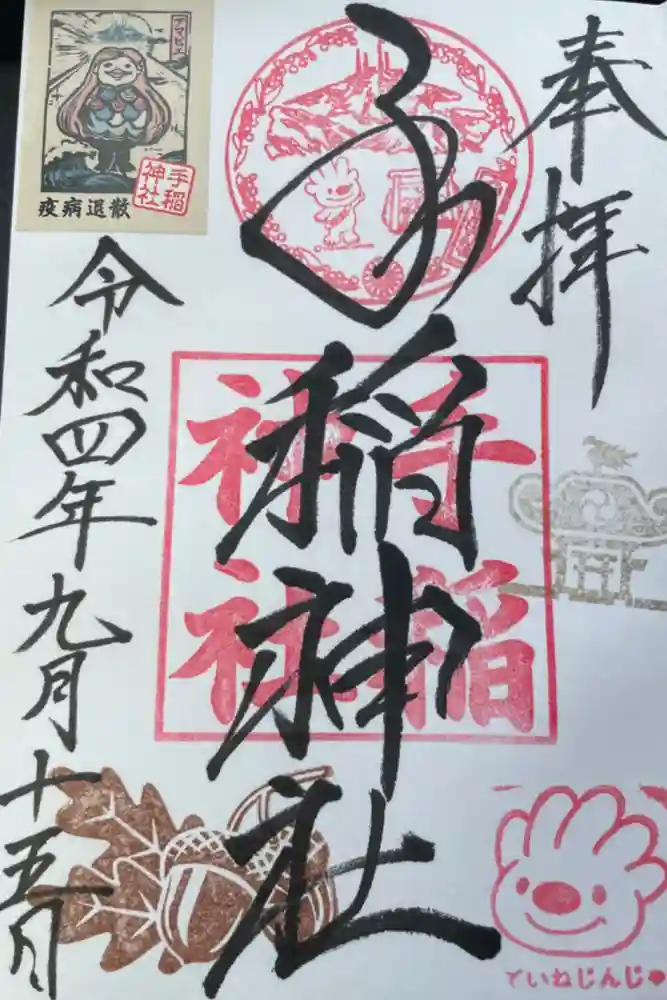 奉拝
手稲神社
手稲
神社
アマビエ
手稲
神社
疫病退散
令和四年九月十五日
ていねじんじゃ